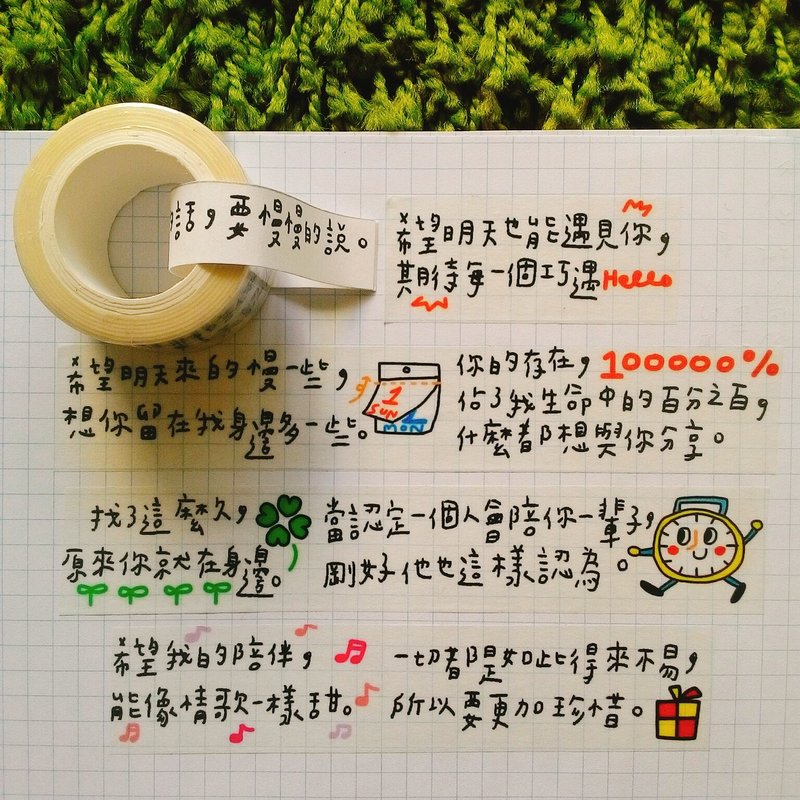 話，要慢慢的說。
希望明天也能遇見你，
期待每一個巧遇Hello
希望明天來的慢一些，
想你留在我身邊多一些。
1
SUN
2
MON
你的存在，100000%
佔了我生命中的百分之百，
什麼都想與你分享。
找了這麼久，
原來你就在身邊。
當認定一個人會陪你一輩子，
剛好他也這樣認為。
希望我的陪伴，
能像情歌一樣甜。
一切都是如此得來不易，
所以要更加珍惜。